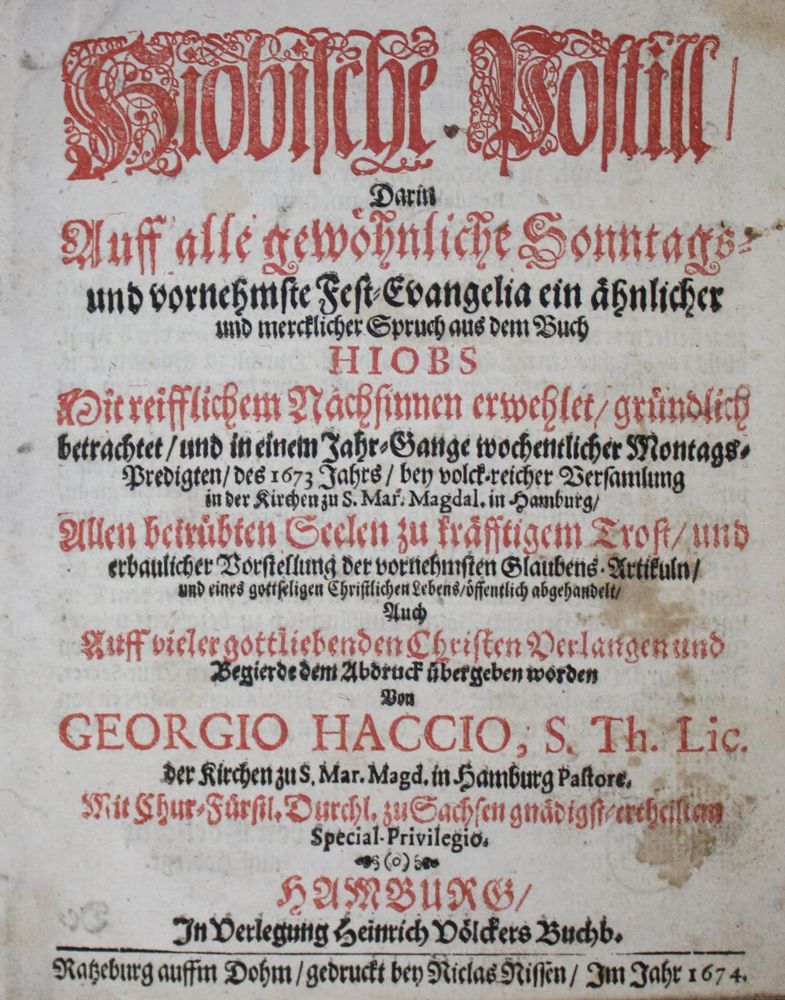 Hiobische Postill/
Darin
Auff alle gewöhnliche Sonntags-
und vornehmste Fest-Evangelia ein ähnlicher
und mercklicher Spruch aus dem Buch
HIOBS
Mit reifflichem Nachsinnen erwehlet/ gründlich
betrachtet/ und in einem Jahr-Gange wochentlicher Montags-
Predigten/ des 1673 Jahrs/ bey volck-reicher Versamlung
in der Kirchen zu S. Mar. Magdal. in Hamburg/
Allen betrübten Seelen zu kräfftigem Trost/ und
erbaulicher Vorstellung der vornehmsten Glaubens-Artikuln/
und eines gottseligen Christlichen Lebens/ öffentlich abgehandelt/
Auch
Auff vieler gottliebenden Christen Verlangen und
Begierde dem Abdruck übergeben worden
Von
GEORGIO HACCIO, S. Th. Lic.
der Kirchen zu S. Mar. Magd. in Hamburg Pastore.
Mit Chur-Fürstl. Durchl. zu Sachsen gnädigst-ertheilten
Special-Privilegio.
(o)
HAMBURG/
In Verlegung Heinrich Völckers Buchb.
Ratzeburg auffm Dohm/ gedruckt bey Niclas Nissen/ Im Jahr 1674.